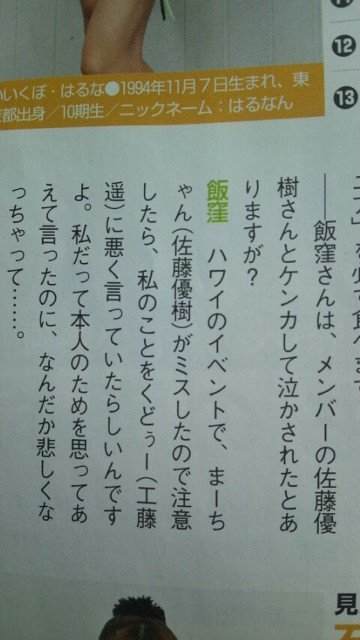 いいくぼ・はるな●1994年11月7日生まれ、東
京都出身／10期生／ニックネーム：はるなん
⑫
⑬
――飯窪さんは、メンバーの佐藤優
樹さんとケンカして泣かされたとあ
りますが？
飯窪　ハワイのイベントで、まーち
ゃん（佐藤優樹）がミスしたので注意
したら、私のことをくどぅー（工藤
遥）に悪く言っていたらしいんです
よ。私だって本人のためを思ってあ
えて言ったのに、なんだか悲しくな
っちゃって……。
見